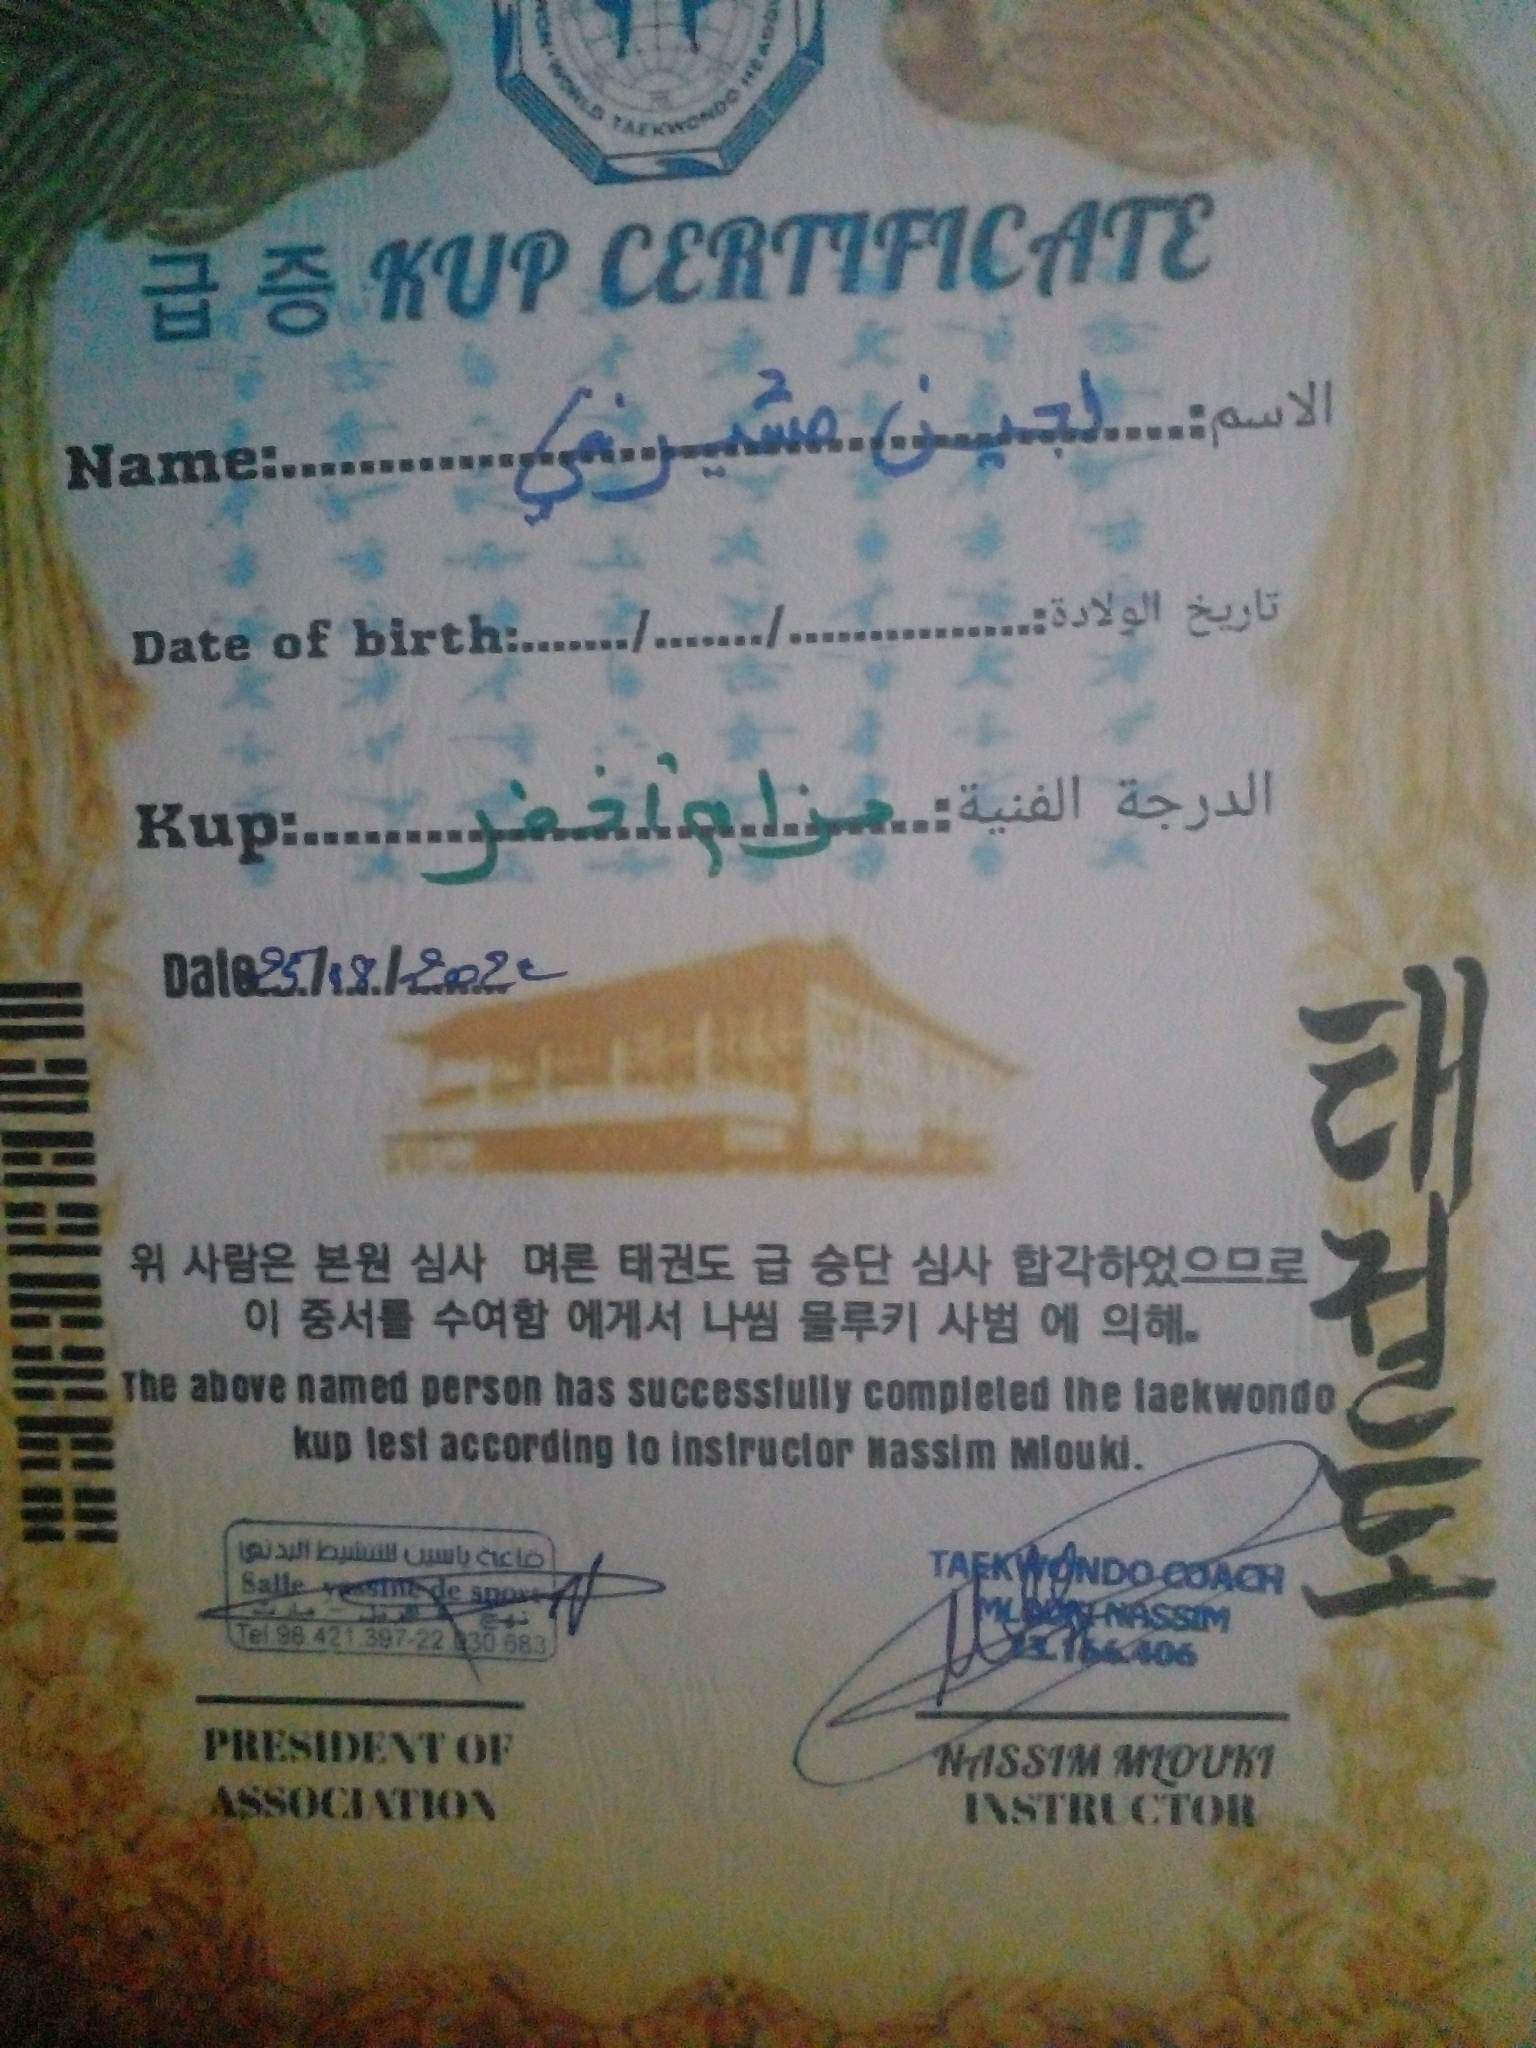 WORLD TAEKWONDO
급 증 KUP CERTIFICATE
Name: لجين مشيرفي :الاسم
Date of birth:......./......./...............:تاريخ الولادة
Kup: حزام أخضر :الدرجة الفنية
Date 25/08/2022
태권도
위 사람은 본원 심사 며론 태권도 급 승단 심사 합각하었으므로
이 중서를 수여함 에게서 나씸 믈루키 사범 에 의해.
The above named person has successfully completed the taekwondo
kup test according to instructor Nassim Mlouki.
قاعة ياسين للتنشيط البدني
Salle yassine de sport
نهج
Tel 98 421.397-22 030 683
TAEKWONDO COACH
MLOUKI NASSIM
23.166.406
PRESIDENT OF
ASSOCIATION
NASSIM MLOUKI
INSTRUCTOR